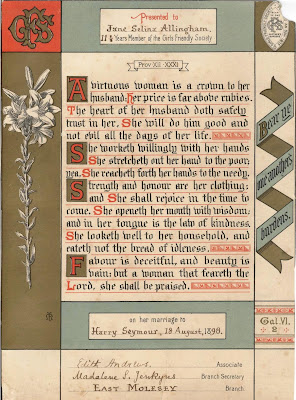 GFS
Presented to
Jane Selina Allingham,
Years Member, of the Girls Friendly Society
Prov XII - XXXI
A virtuous woman is a crown to her
husband: her price is far above rubies.
The heart of her husband doth safely
trust in her, She will do him good and
not evil all the days of her life.
She worketh willingly with her hands
She stretcheth out her hand to the poor;
yea, She reacheth forth her hands to the needy.
Strength and honour are her clothing;
and She shall rejoice in the time to
come. She openeth her mouth with wisdom;
and in her tongue is the law of kindness
She looketh well to her household, and
eateth not the bread of idleness.
Favour is deceitful, and beauty is
vain: but a woman that feareth the
Lord, she shall be praised.
Bear ye
one anothers
burdens.
Gal. VI.
2
on her marriage to
Harry Seymour, 18 August, 1898.
Edith Andrews Associate
Madalene S. Jenkyns Branch Secretary
East Molesey Branch